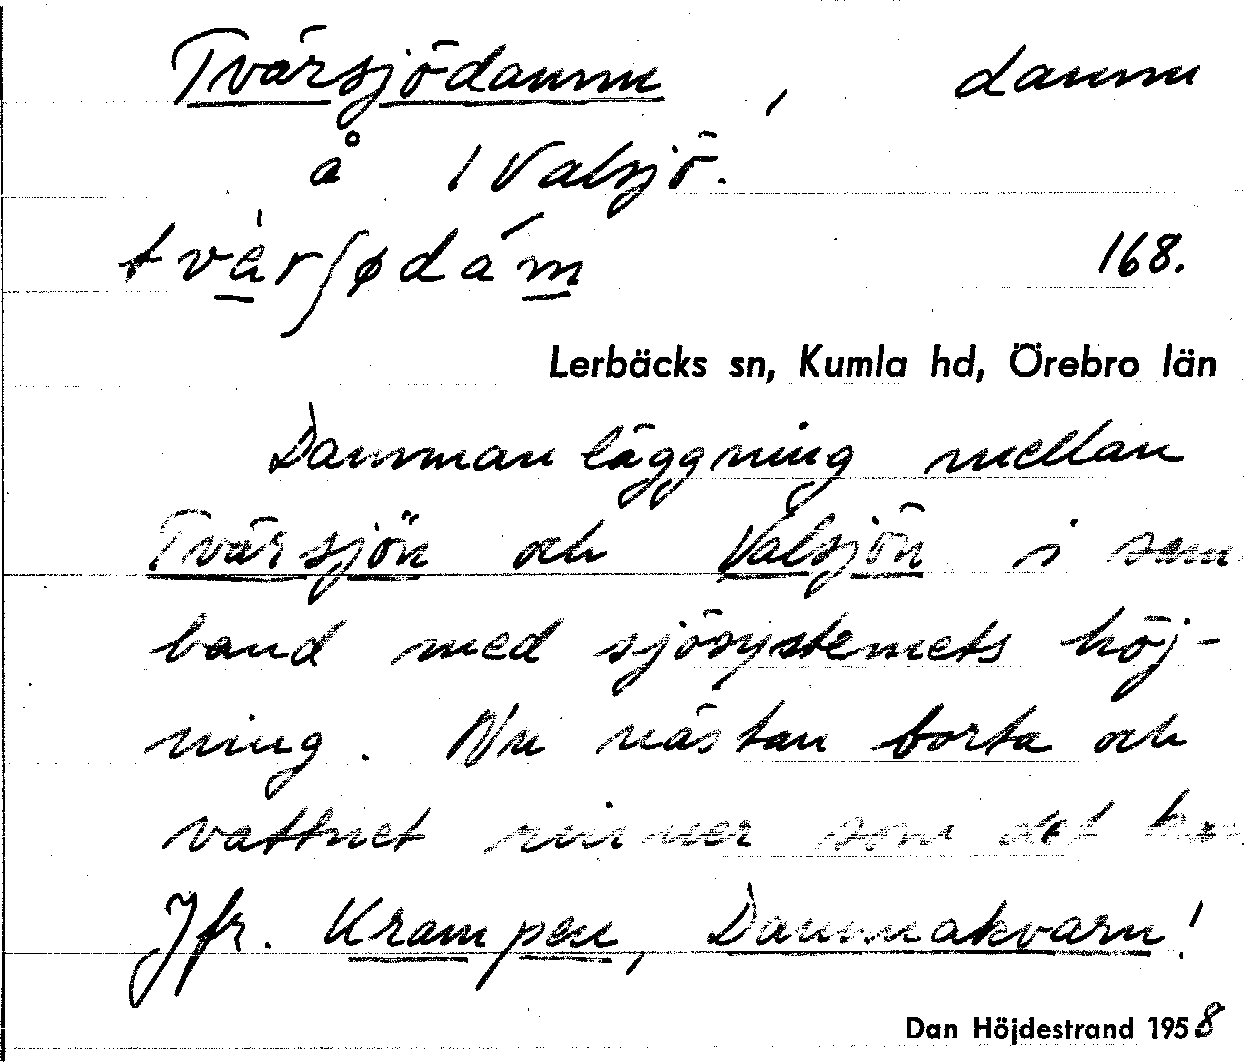 Tvärsjödamm, damm
å 1 Valsjö.
tvàrʃødám 168.
Lerbäcks sn, Kumla hd, Örebro län
Dammanläggning mellan
Tvärsjön och Valsjön i sam
band med sjösystemets höj-
ning. Nu nästan borta och
vattnet rinner som det
Jfr. Krampen, Dammakvarn!
Dan Höjdestrand 1958